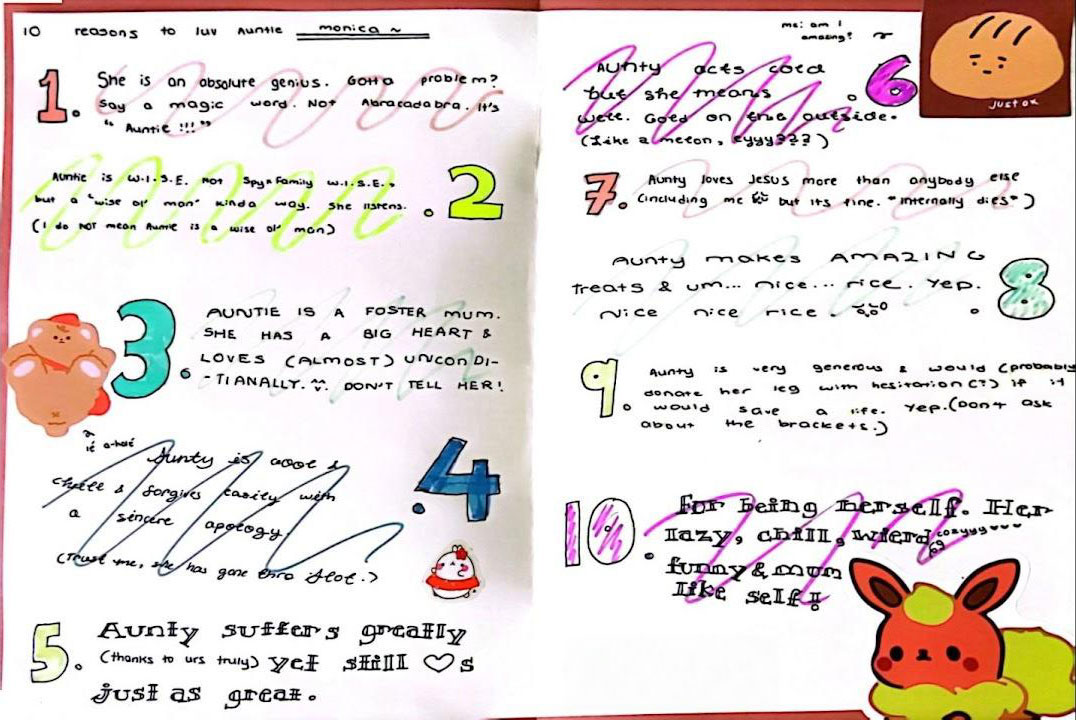 10 reasons to luv Auntie monica ~
1. She is an absolute genius. Gotta problem?
Say a magic word. Not Abracadabra. It's
"Auntie !!!"
2. Auntie is W.I.S.E. Not Spy x Family W.I.S.E.,
but a "wise ol' man" kinda way. She listens.
(I do NOT mean Auntie is a wise ol' man)
3. AUNTIE IS A FOSTER MUM.
SHE HAS A BIG HEART &
LOVES (ALMOST) UNCONDI-
-TIANALLY. DON'T TELL HER!
4. Aunty is cool &
chill & forgives easily with
a sincere apology.
(Trust me, she has gone thro alot.)
5. Aunty suffers greatly
(thanks to urs truly) yet still ♡s
just as great.
me: am I
amazing?
just ok
6. Aunty acts cold
but she means
well. Gold on the outside.
(Like a melon, eyyy???)
7. Aunty loves JESUS more than anybody else
(including me but its fine. *internally dies*)
8. Aunty makes AMAZING
treats & um... nice... rice. Yep.
Nice nice rice.
9. Aunty is very generous & would (probably
donate her leg with hesitation (?) if it
would save a life. Yep. (Don't ask
about the brackets.)
10. for being herself. Her
lazy, chill, wierd, cozyyy ♥♥♥
funny & mum
like self!